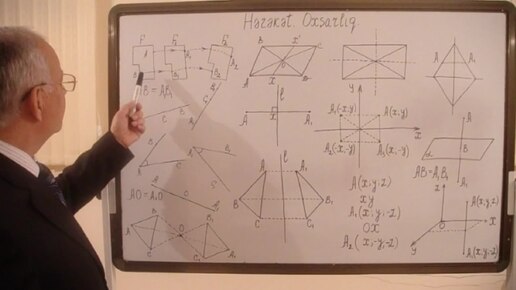 Hərəkət. Oxşarlıq.
F F₁ F₂
A A₁ A₂
B B₁ B₂
AB = A₁B₁
B X' C
A X D
l
A X A₁
y
A₁(-x;y) A(x;y)
x
A₂(-x;-y) A₃(x;-y)
A
B
α
A₁
AB=A₁B₁
C B
A C
A₁ C₁ B₁
AO = A₁O
A C B
B B₁
A C O C₁ A₁
l
A A₁
B B₁
C C₁
A(x;y;z)
xy
A₁(x;y;-z)
OX
A₂(x;-y;-z)
z
A(x;y;z)
O X
y
A₁(x;y;-z)